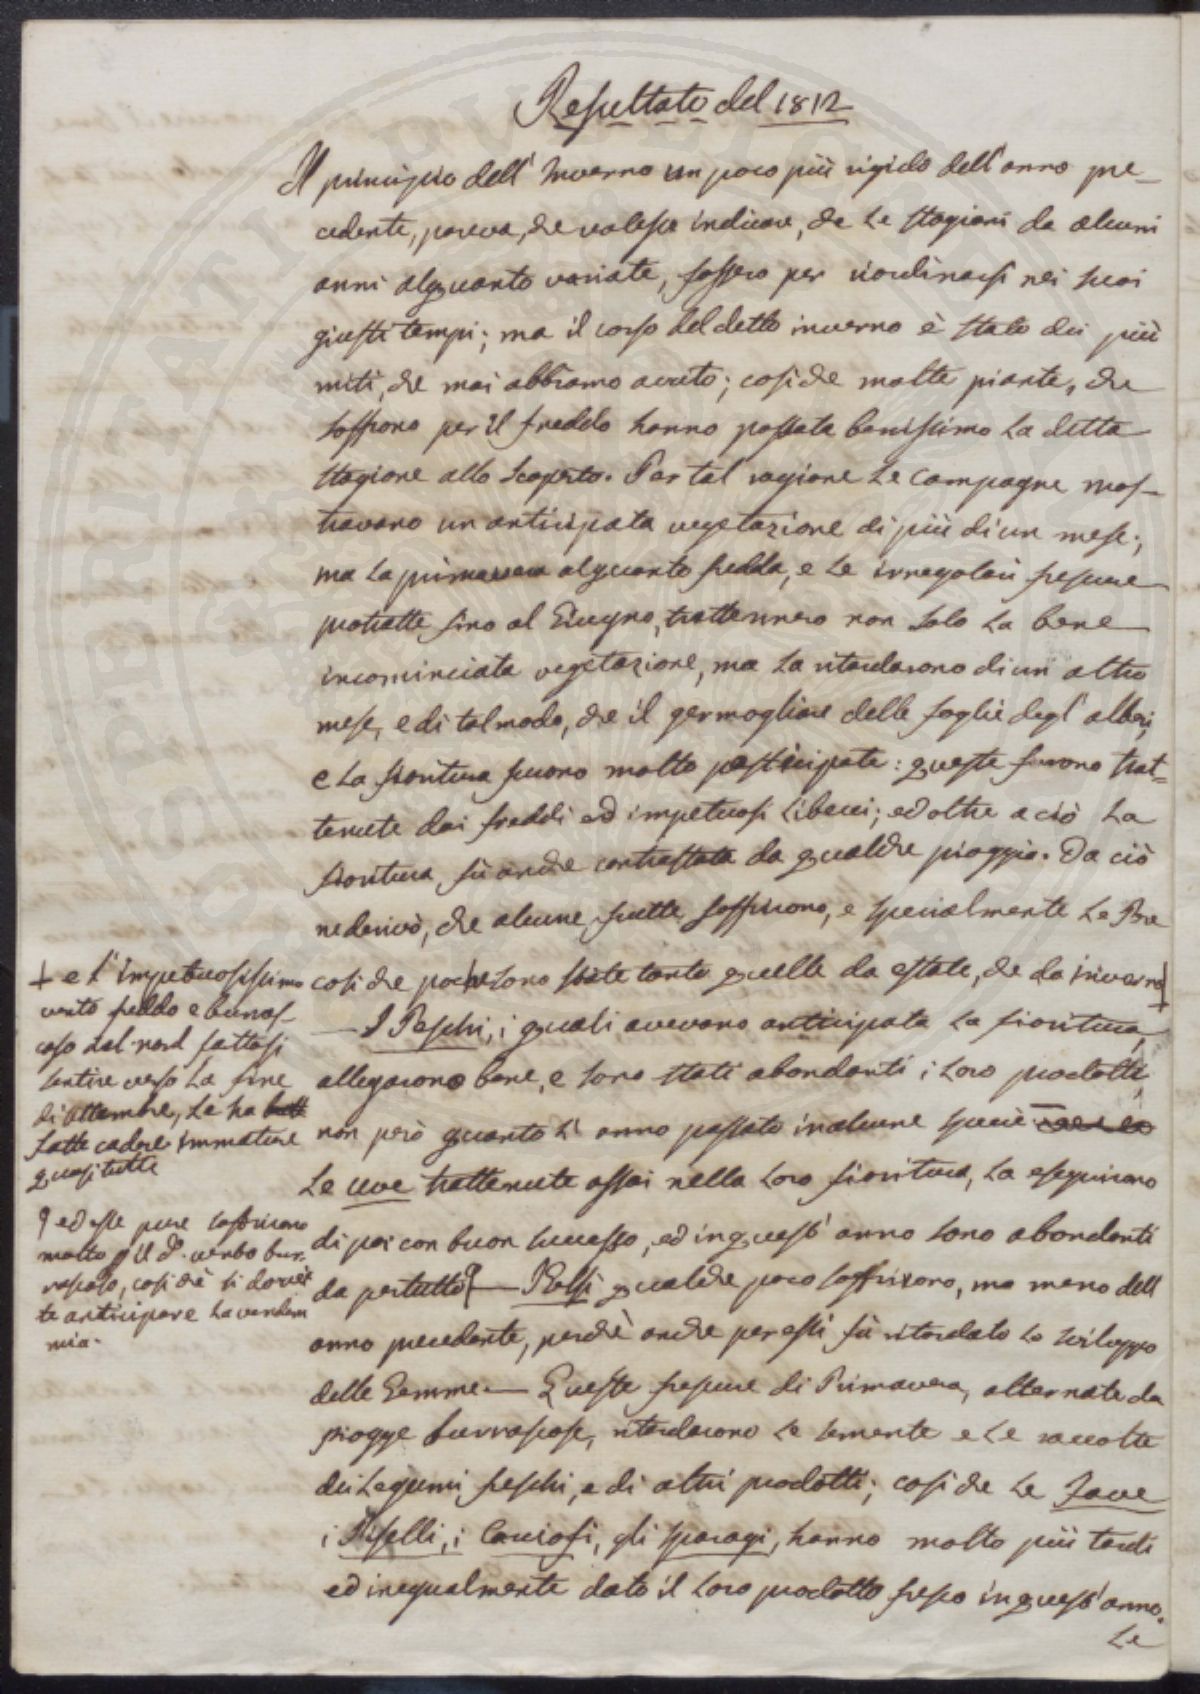 Resultato del 1812
Il principio dell' Inverno un poco più rigido dell'anno pre-
cedente, pareva, che volesse indicare, che le stagioni da alcuni
anni alquanto variate, fossero per riordinarsi nei suoi
giusti tempi; ma il corso del detto inverno è stato dei più
miti, che mai abbiamo avuto; cosi che molte piante, che
soffrono per il freddo hanno passata benissimo la detta
stagione allo scoperto. Per tal ragione le campagne mos-
travano un anticipata vegetazione di più di un mese;
ma la primavera alquanto fredda, e le irregolari frescure
protratte fino al Giugno, trattennero non solo la bene
incominciata vegetazione, ma la ritardarono di un altro
mese, e di tal modo, che il germogliare delle foglie degl' alberi,
e la fioritura furono molto posticipate: queste furono trat-
tenute dai freddi ed impetuosi libecci; ed oltre a ciò la
fioritura fù anche contrastata da qualche pioggia. Da ciò
ne derivò, che alcune frutte soffrirono, e specialmente le Pere
cosi che poche sono state tanto quelle da estate, che da inverno
+ e l' impetuosissimo
vento freddo e burras-
coso del nord fattosi
sentire verso la fine
di ottembre, le ha
fatte cadere immature
quasi tutte
— I Peschi, i quali avevano anticipata la fioritura,
allegarono bene, e sono stati abondanti i loro prodotti,
non però quanto l' anno passato in alcune specie
Le uve trattenute assai nella loro fioritura, la eseguirono
di poi con buon successo, ed in quest' anno sono abondanti
da pertutto — I Gelsi qualche poco soffrirono, ma meno dell
ed esse pure soffrirono
molto il d. vento bur-
rascoso, cosi che si dovet
te anticipare la vendem
mia.
anno precedente, perchè anche per essi fù ritardato lo sviluppo
delle Gemme — Queste frescure di Primavera, alternate da
piogge burrascose, ritardarono le semente e le raccolte
dei Legumi freschi, e di altri prodotti; cosi che le Fave
i Piselli, i Carciofi, gli sparagi, hanno molto più tardi
ed inegualmente dato il loro prodotto fresco in quest'anno.
Le